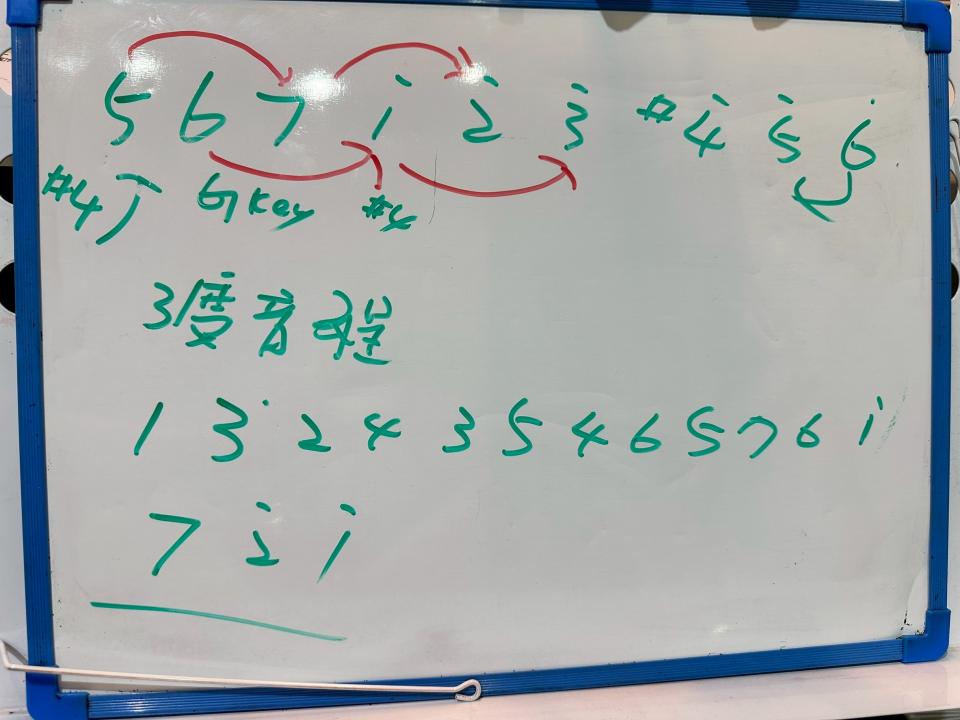 5 6 7 i 2̇ 3̇ #4̇ 5̇ 6̇
#4 G Key #4
3度音程
1 3 2 4 3 5 4 6 5 7 6 i
7 2̇ i